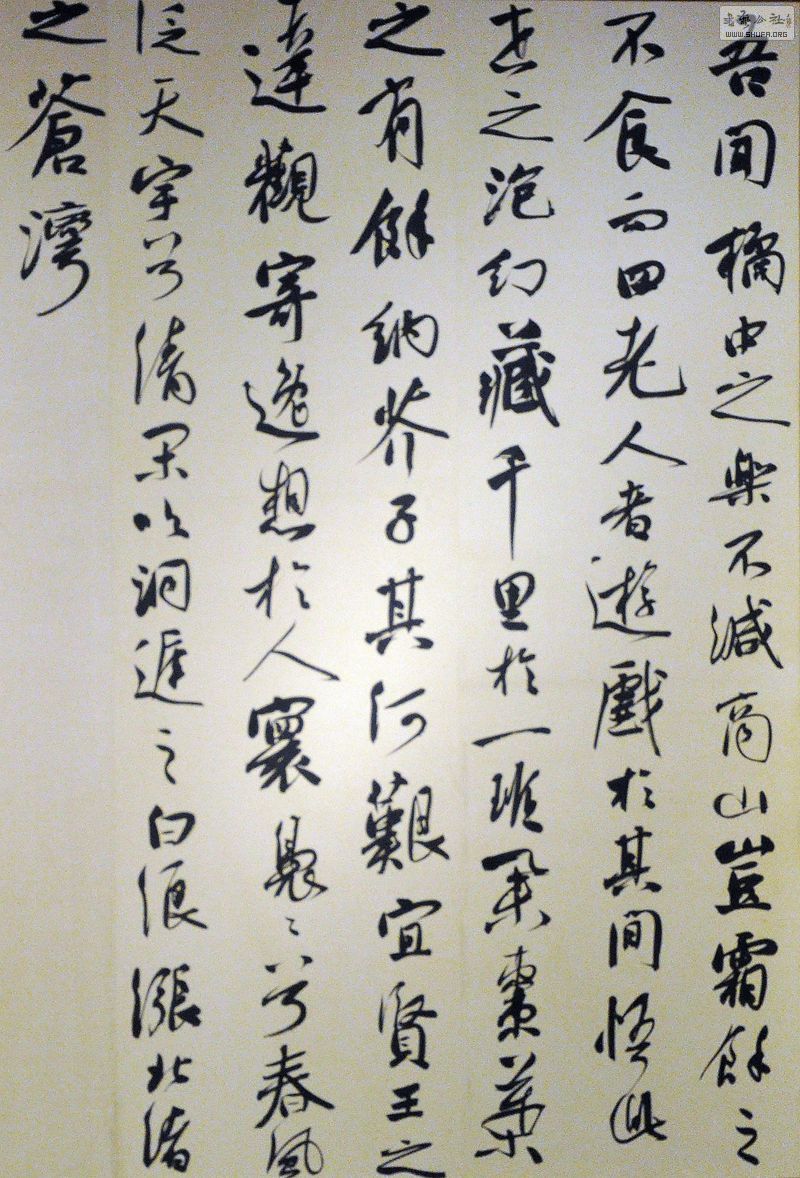 吾聞橘中之樂不減商山豈霜餘之
不食而四老人者遊戲於其間悟此
世之泡幻藏千里於一班舉棗葉
之有餘納芥子其何艱宜賢王之
達觀寄逸想於人寰裊々兮春風
泛天宇兮清閑吹洞庭之白浪漲北渚
之蒼灣
書法公社
WWW.SHUFA.ORG